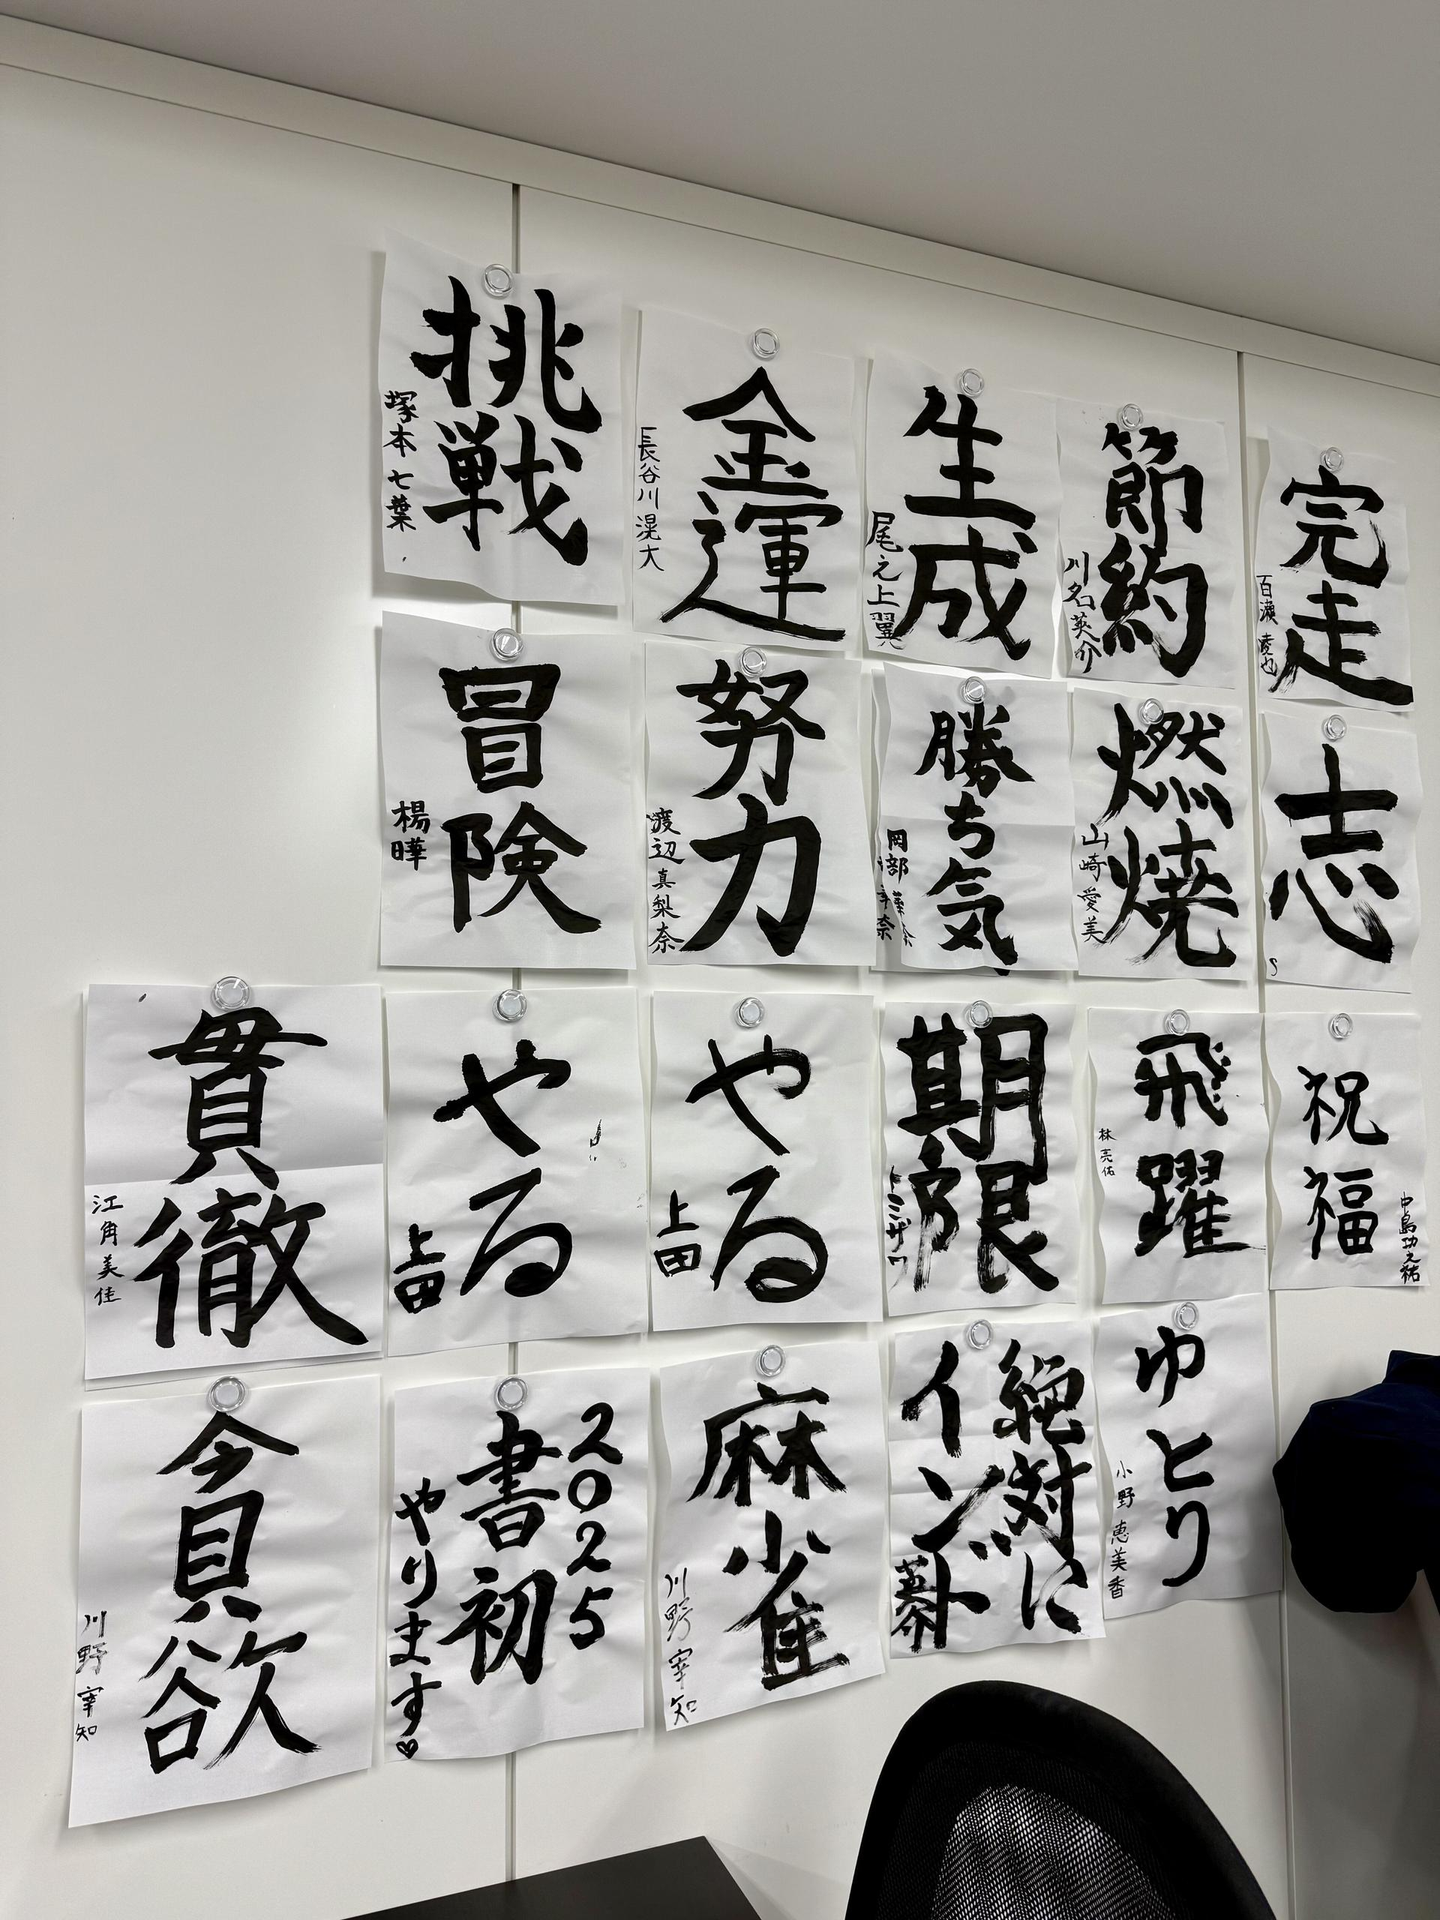 挑戦
塚本七葉
金運
長谷川滉大
生成
尾之上翼
節約
川名英介
完走
百瀬凌也
冒険
楊曄
努力
渡辺真梨奈
勝ち気
岡部
燃焼
山崎愛美
志
貫徹
江角美佳
やる
上田
やる
上田
期限
トミザワ
飛躍
林亮佑
祝福
中島功之祐
貪欲
川野宰知
2025
書初
やります♡
麻雀
川野宰知
絶対に
インド
ゆとり
小野恵美香